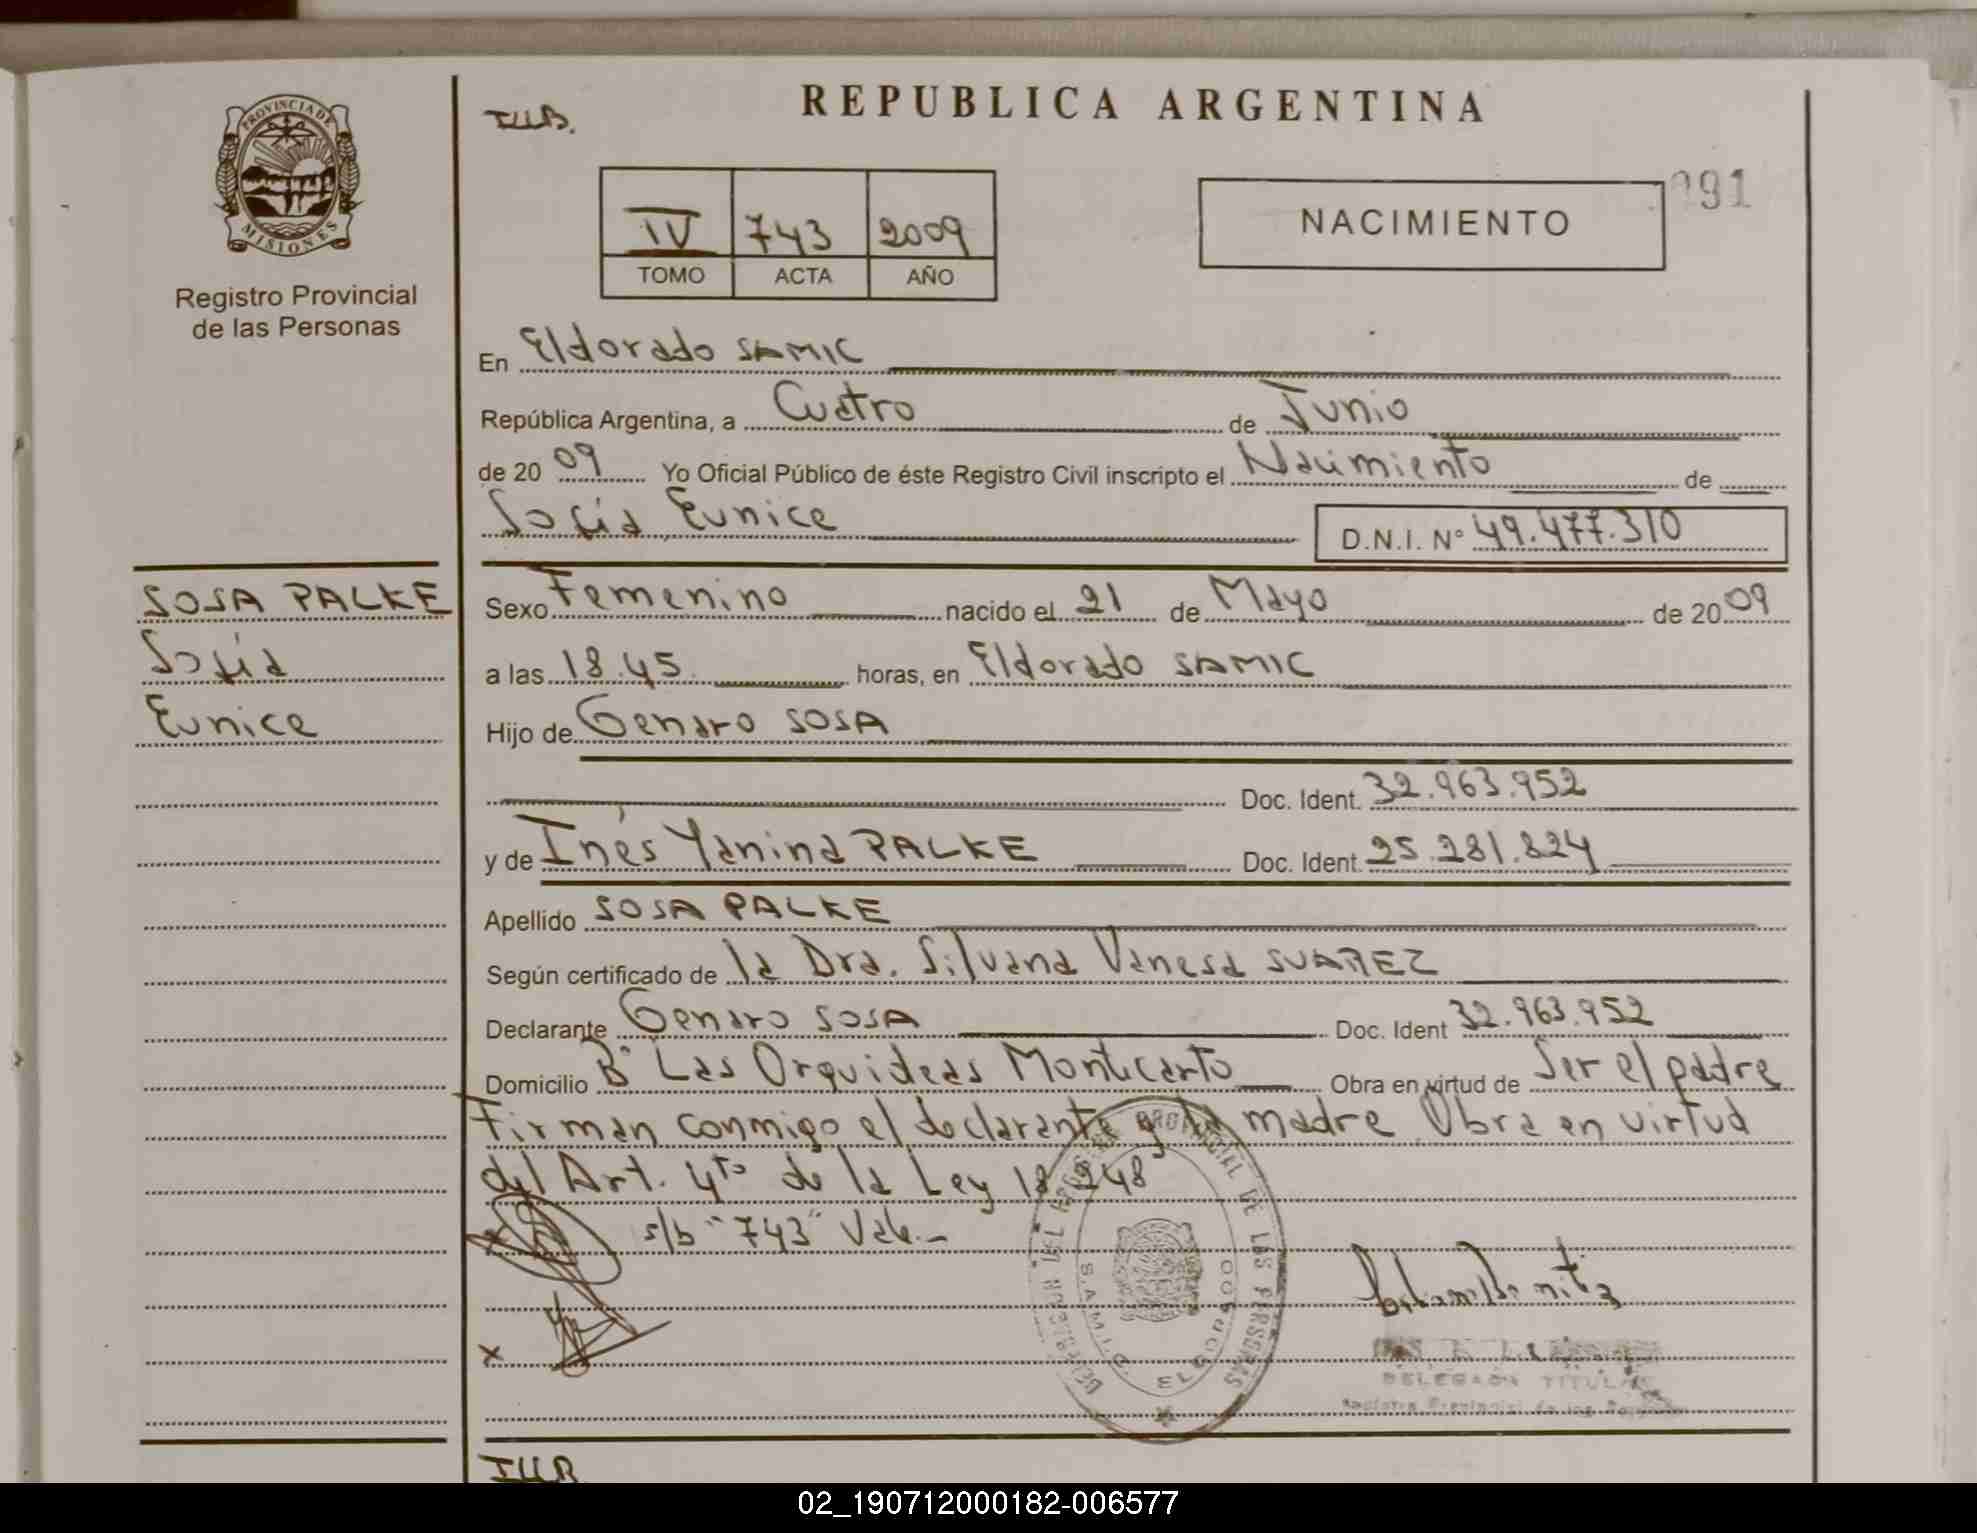 PROVINCIA DE
MISIONES
Registro Provincial
de las Personas
REPUBLICA ARGENTINA
IV 743 2009
TOMO ACTA AÑO
NACIMIENTO
991
En Eldorado SAMIC
República Argentina, a Cuatro de Junio
de 20 09 Yo Oficial Público de éste Registro Civil inscripto el Nacimiento de
Sofía Eunice
D.N.I. Nº 49.477.310
SOSA PALKE
Sofía
Eunice
Sexo Femenino nacido el 21 de Mayo de 20 09
a las 18.45 horas, en Eldorado SAMIC
Hijo de Genaro SOSA
Doc. Ident. 32.963.952
y de Inés Yanina PALKE Doc. Ident. 25.281.824
Apellido SOSA PALKE
Según certificado de la Dra. Silvana Vanesa SUAREZ
Declarante Genaro SOSA Doc. Ident 32.963.952
Domicilio Bº Las Orquideas Montecarlo Obra en virtud de Ser el padre
Firman conmigo el declarante y la madre Obra en virtud
del Art. 4to de la Ley 18248
s/b "743" Vale.-
S.A.M.I.C. ELDORADO
DELEGADA TITULAR
Registro Provincial de las Personas
02_190712000182-006577